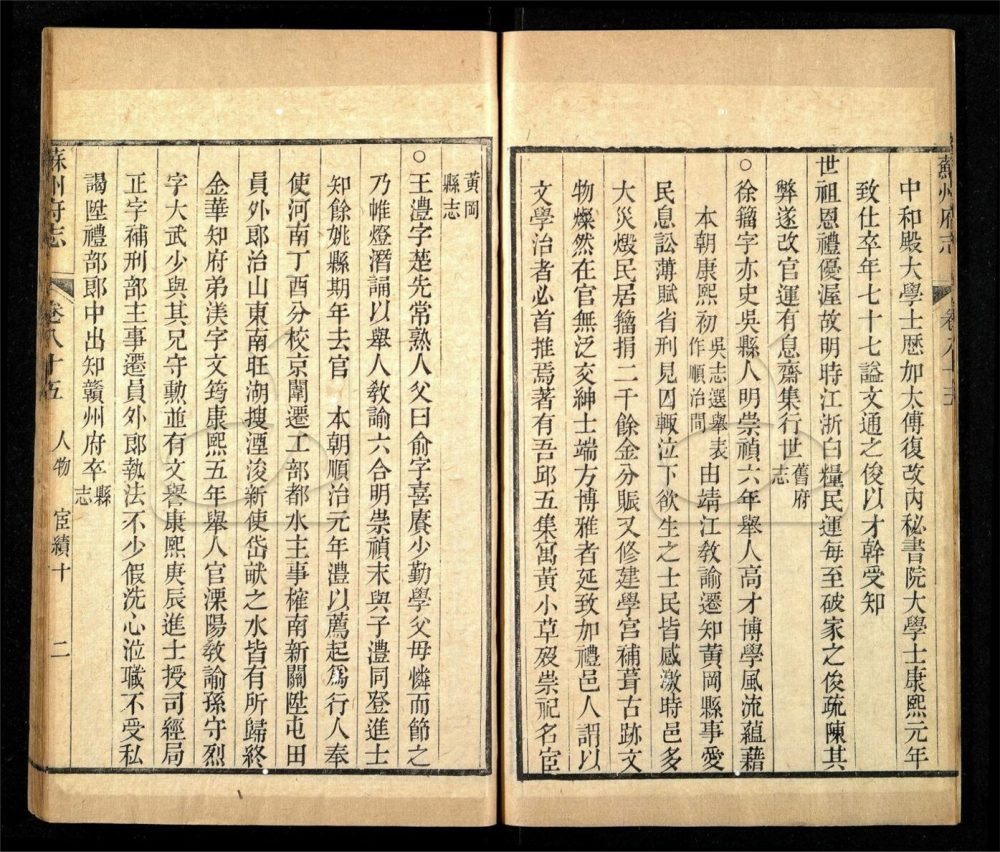 蘇州府志 卷八十五
中和殿大學士歷加太傅復改內秘書院大學士康熙元年
致仕卒年七十七謚文通之俊以才幹受知
世祖恩禮優渥故明時江浙白糧民運每至破家之俊疏陳其
弊遂改官運有息齋集行世舊府志
○徐籀字亦史吳縣人明崇禎六年舉人高才博學風流蘊藉
本朝康熙初吳志選舉表作順治間由靖江敎諭遷知黃岡縣事愛
民息訟薄賦省刑見囚輒泣下欲生之士民皆感激時邑多
大災燬民居籀捐二千餘金分賑又修建學宮補葺古跡文
物燦然在官無泛交紳士端方博雅者延致加禮邑人謂以
文學治者必首推焉著有吾邱五集寓黃小草歿崇祀名宦
黃岡縣志
○王澧字楚先常熟人父曰俞字喜賡少勤學父母憐而節之
乃帷燈潛誦以舉人敎諭六合明崇禎末與子澧同登進士
知餘姚縣期年去官 本朝順治元年澧以薦起爲行人奉
使河南丁酉分校京闈遷工部都水主事榷南新關陞屯田
員外郎治山東南旺湖搜湮浚新使岱畎之水皆有所歸終
金華知府弟渼字文筠康熙五年舉人官溧陽敎諭孫守烈
字大武少與其兄守勲並有文譽康熙庚辰進士授司經局
正字補刑部主事遷員外郎執法不少假洗心涖職不受私
謁陞禮部郎中出知贛州府卒縣志
蘇州府志 卷八十五 人物 宦績十 二